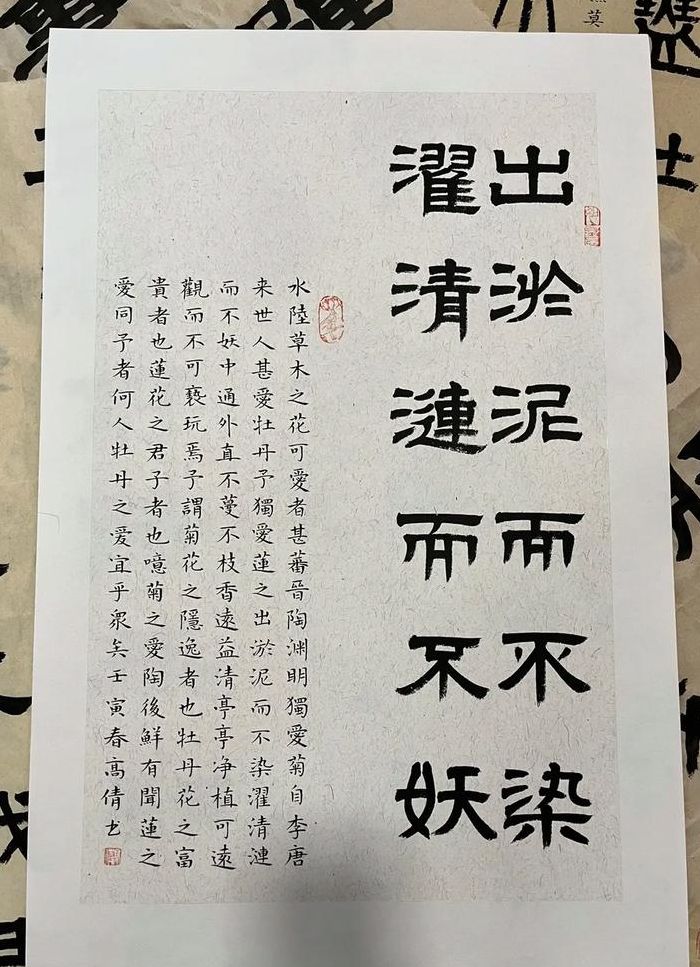 出淤泥而不染
濯清漣而不妖
水陸草木之花可愛者甚蕃晉陶渊明獨愛菊自李唐
来世人甚愛牡丹予獨愛蓮之出淤泥而不染濯清漣
而不妖中通外直不蔓不枝香遠益清亭亭净植可遠
觀而不可褻玩焉予謂菊花之隱逸者也牡丹花之富
貴者也蓮花之君子者也噫菊之愛陶後鮮有聞蓮之
愛同予者何人牡丹之愛宜乎眾矣壬寅春高倩书
莫